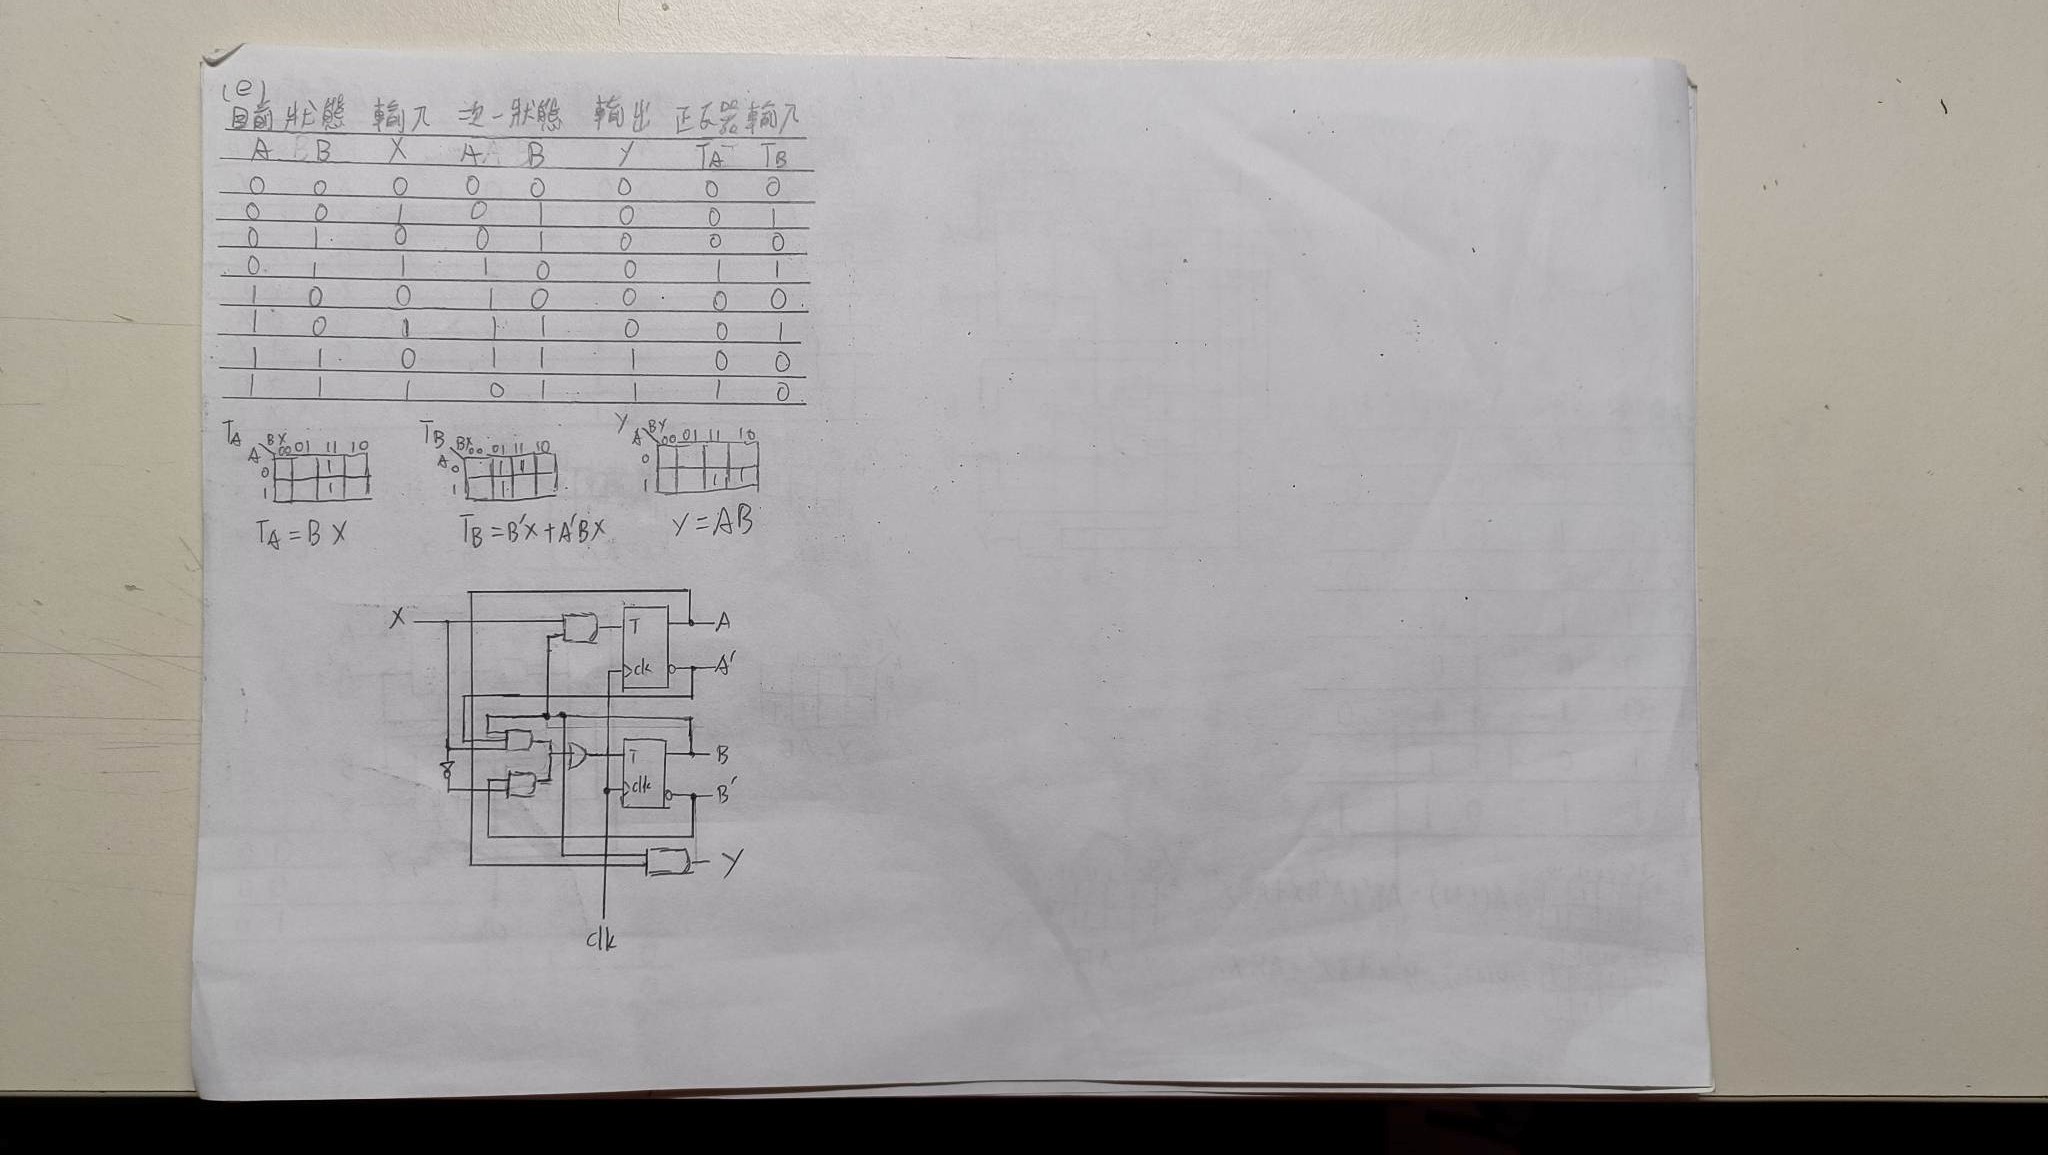 (e)
目前狀態 輸入 次一狀態 輸出 正反器輸入
A B X A B Y TA TB
0 0 0 0 0 0 0 0
0 0 1 0 1 0 0 1
0 1 0 0 1 0 0 0
0 1 1 1 0 0 1 1
1 0 0 1 0 0 0 0
1 0 1 1 1 0 0 1
1 1 0 1 1 1 0 0
1 1 1 0 1 1 1 0
TA BX 00 01 11 10
A
0 1
1 1
TB BX 00 01 11 10
A
0 1 1
1 1
Y BX 00 01 11 10
A
0
1 1 1
TA = BX
TB = B'X + A'BX
Y = AB
X T A
clk A'
T B
clk B'
Y
clk